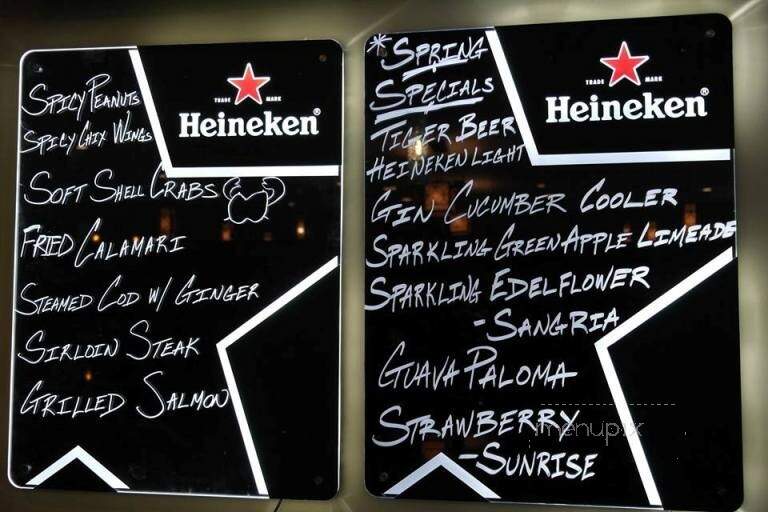 TRADE MARK
Heineken®
SPICY PEANUTS
SPICY CHIX WINGS
SOFT SHELL CRABS
FRIED CALAMARI
STEAMED COD W/ GINGER
SIRLOIN STEAK
GRILLED SALMON
TRADE MARK
Heineken®
*SPRING
SPECIALS
TIGER BEER
HEINEKEN LIGHT
GIN CUCUMBER COOLER
SPARKLING GREEN APPLE LIMEADE
SPARKLING EDELFLOWER
-SANGRIA
GUAVA PALOMA
STRAWBERRY
-SUNRISE
menupix